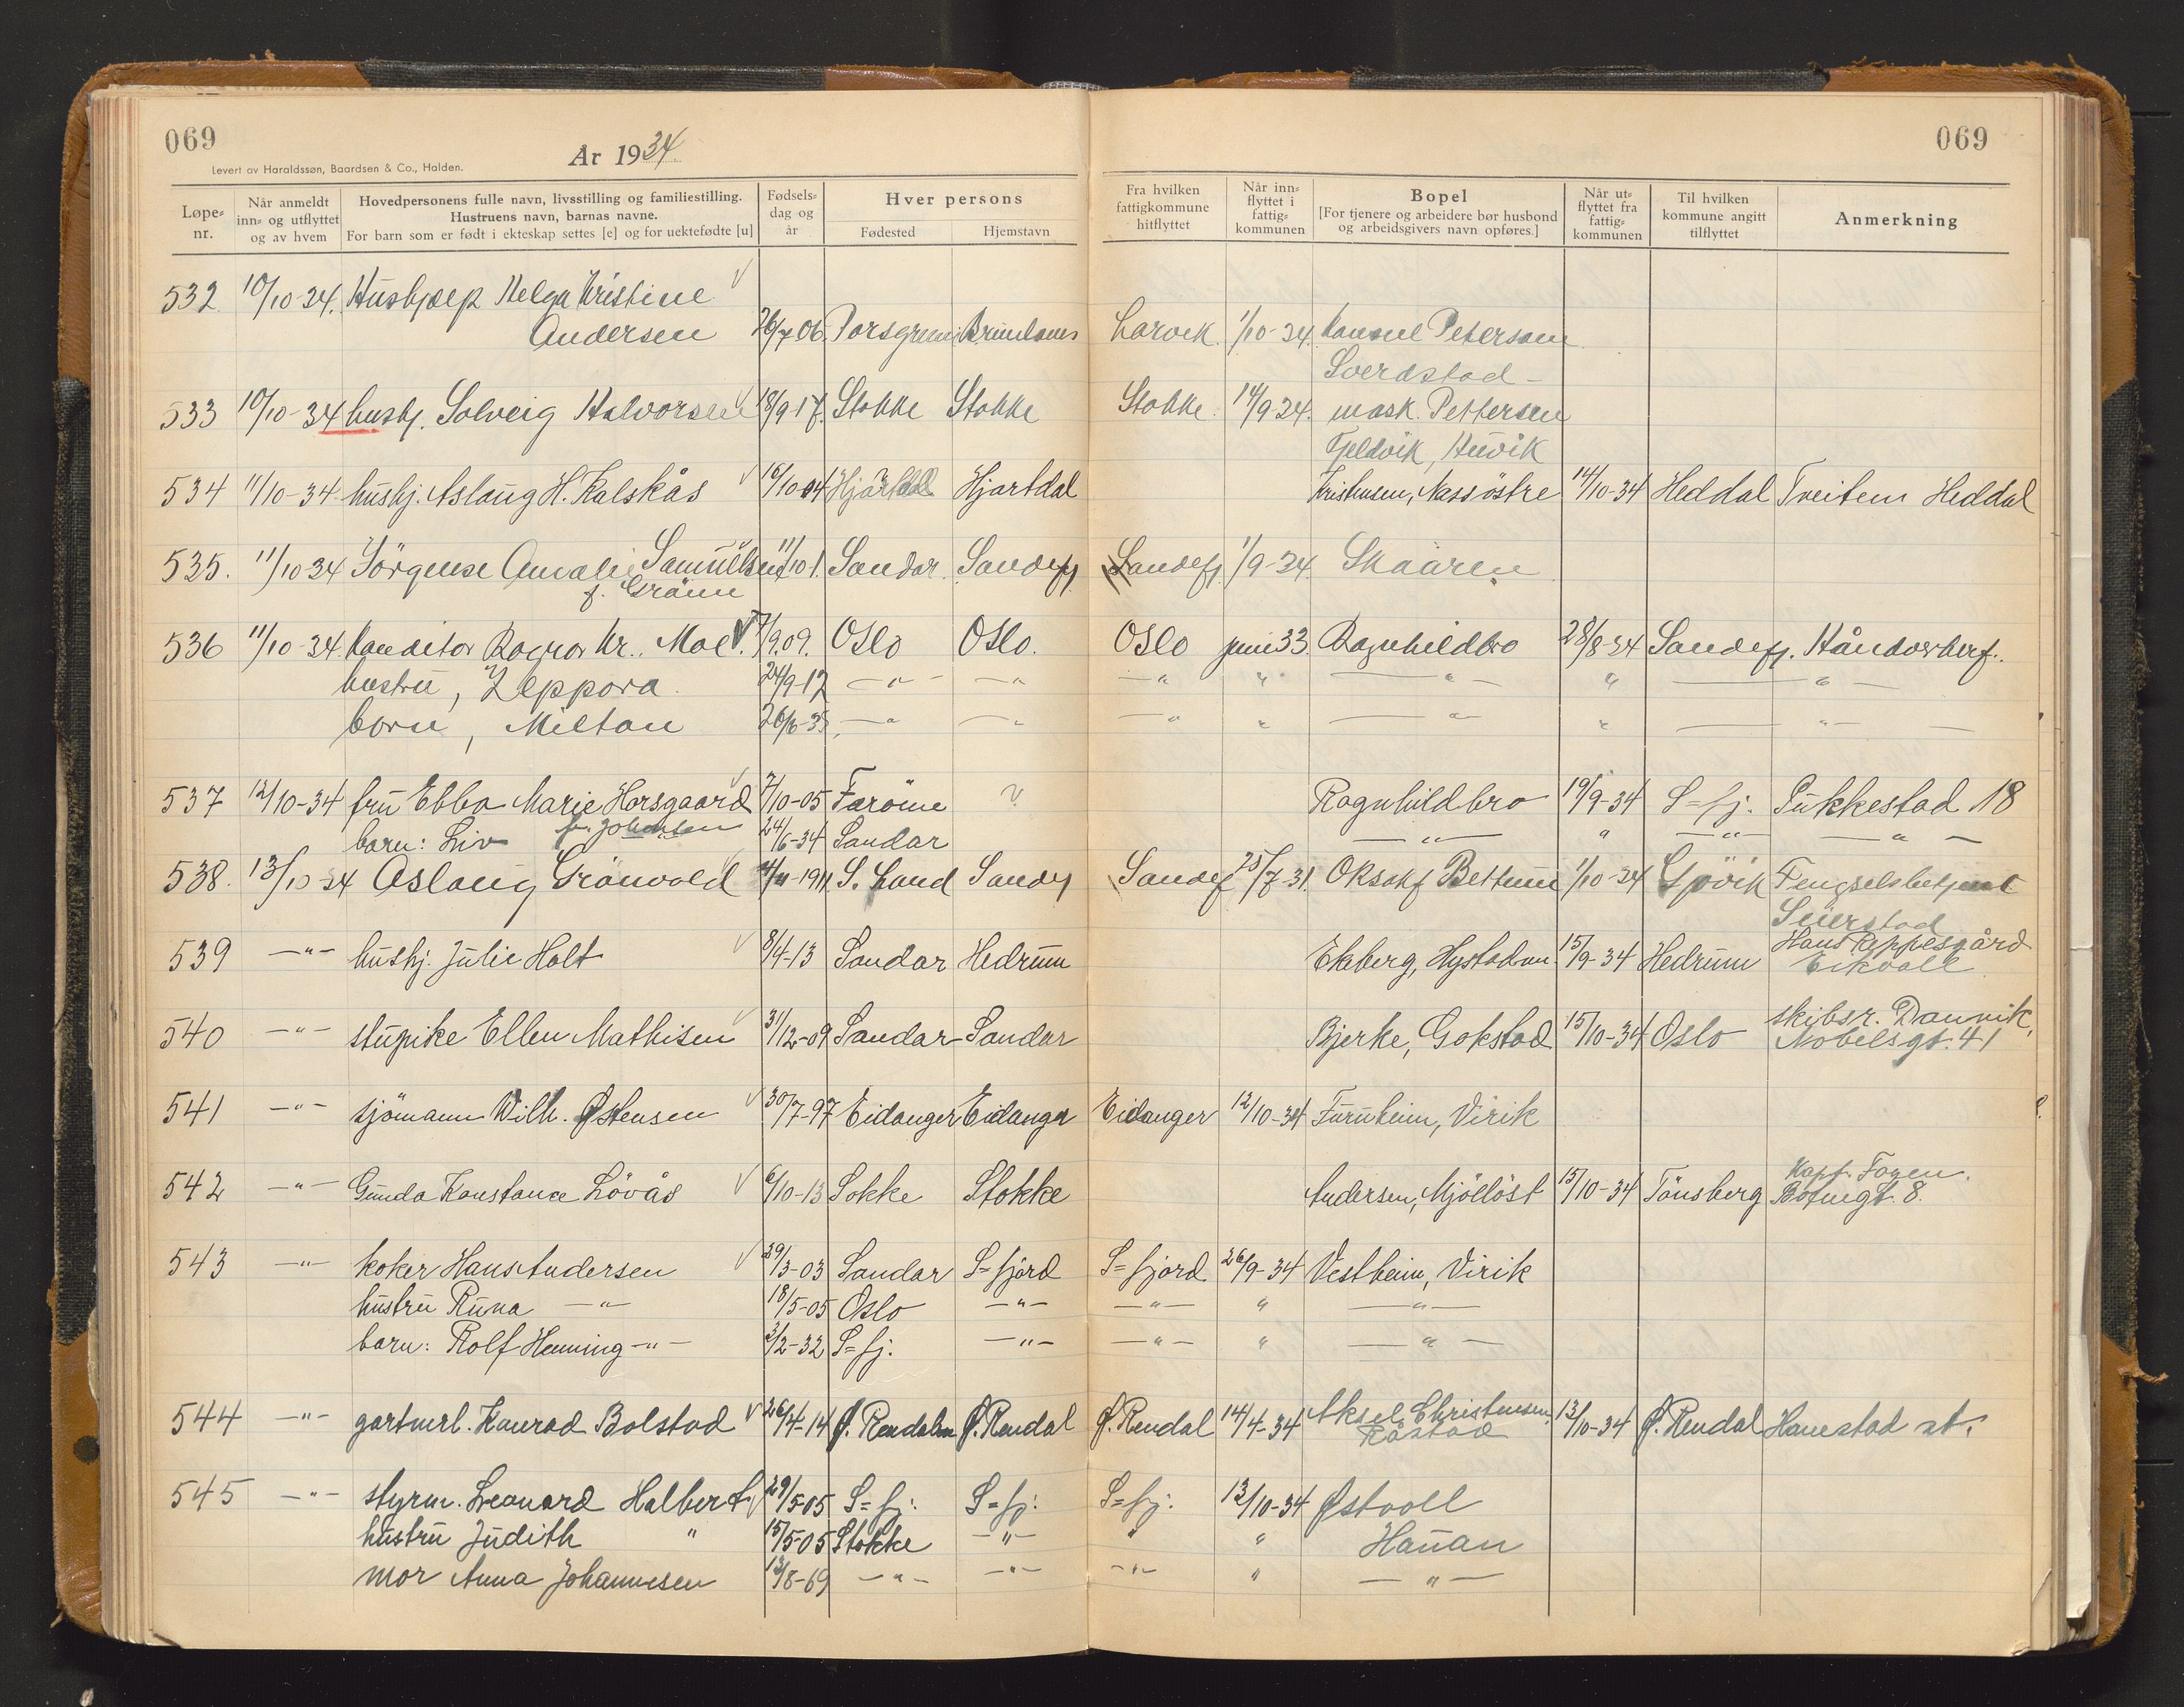 069
069
År 1934
Levert av Haraldssøn, Baardsen & Co., Halden.
Løpe-nr. Når anmeldt inn- og utflyttet og av hvem Hovedpersonens fulle navn, livsstilling og familiestilling. Hustruens navn, barnas navne. For barn som er født i ekteskap settes [e] og for uektefødte [u] Fødsels-dag og år Hver persons Fødested Hjemstavn Fra hvilken fattigkommune hitflyttet Når inn-flyttet i fattig-kommunen Bopel [For tjenere og arbeidere bør husbond og arbeidsgivers navn opføres.] Når ut-flyttet fra fattig-kommunen Til hvilken kommune angitt tilflyttet Anmerkning
532 10/10-34. Hushjælp Helga Kristine
Andersen 26/7 06. Porsgrunn Brunlanes Larvik. 1/10-34. Konsul Peterson
Sverdstad-
533 10/10-34 hushj. Solveig Halvorsen 18/9-17. Stokke Stokke Stokke 14/9 34. mask. Pettersen
Fjeldvik, Huvik
534 11/10-34 hushj. Aslaug H. Kalskås 16/10 04 Hjartdal Hjartdal Kristensen, Nass östre 14/10-34 Heddal Tveiten Heddal
535. 11/10 34 Jörgense Amalie Samuelsen 11/10 1. Sandar. Sandefj. Sandefj. 1/9-34 Skaaren
f. Gräun
536 11/10-34 Konditor Ragnar Kr. Moe 7/9.09. Oslo Oslo. Oslo juni 33. Ragnhildbro 28/8-34 Sandefj. Håndverkerf.
hustru, Zeppora 24/9-12 -"- -"- -"- " -"- " -"-
barn, Milton 26/6-33 -"- -"- -"- " -"- " -"-
537 12/10-34 fru Ebba Marie Horsgaard 7/10-05 Faröine ? Ragnhildbro 19/9-34 S=fj. Pukkestad 18
barn: Liv f. Johansen 24/6-34 Sandar -"- " -"- -"-
538. 13/10-34 Aslaug Grönvold 4/11-1911 S. Land Sandefj Sandef 25/7-31 Oksakf Bettum 1/10-34 Gjövik Fengselsbetjent
Seierstad
539 -"- hushj. Julie Holt 8/4-13 Sandar Hedrum Ekeberg, Hystadvn 15/9-34 Hedrum Hans Reppesgård
Eikvoll
540 -"- stupike Ellen Mathisen 31/12-09 Sandar Sandar Bjerke, Gokstad 15/10-34 Oslo skibsr. Dannvik,
Nobelsgt. 41
541 -"- sjömann Wilh. Østensen 30/7-97 Eidanger Eidanger Eidanger 12/10-34 Furuheim, Virik
542 -"- Gunda Konstance Lövås 6/10-13 Sokke Stokke Andersen, Mjöllöst 15/10-34 Tönsberg Kapt. Foyen.
8.
543 -"- koker Hans Andersen 29/3-03 Sandar S=fjord S=fjord 26/9-34 Vestheim, Virik
hustru Runa -"- 18/5-05 Oslo -"- -"- " -"-
barn: Rolf Henning -"- 3/2-32 S=fj. -"- -"- " -"-
544 -"- gartnerl. Konrad Bolstad 26/4-14 Ø. Rendalen Ø. Rendal Ø. Rendal 14/4-34 Aksel Christensen, 13/10-34 Ø. Rendal Hanestad st.
Råstad
545 -"- styrm. Leonard Halbert 29/5-05 S=fj. S=fj. S=fj. 13/10-34 Østvoll
hustru Judith " 15/5-05 Stokke -"- " " Haŭan
mor Anna Johannesen 12/8-69 -"- -"- -"- " -"-